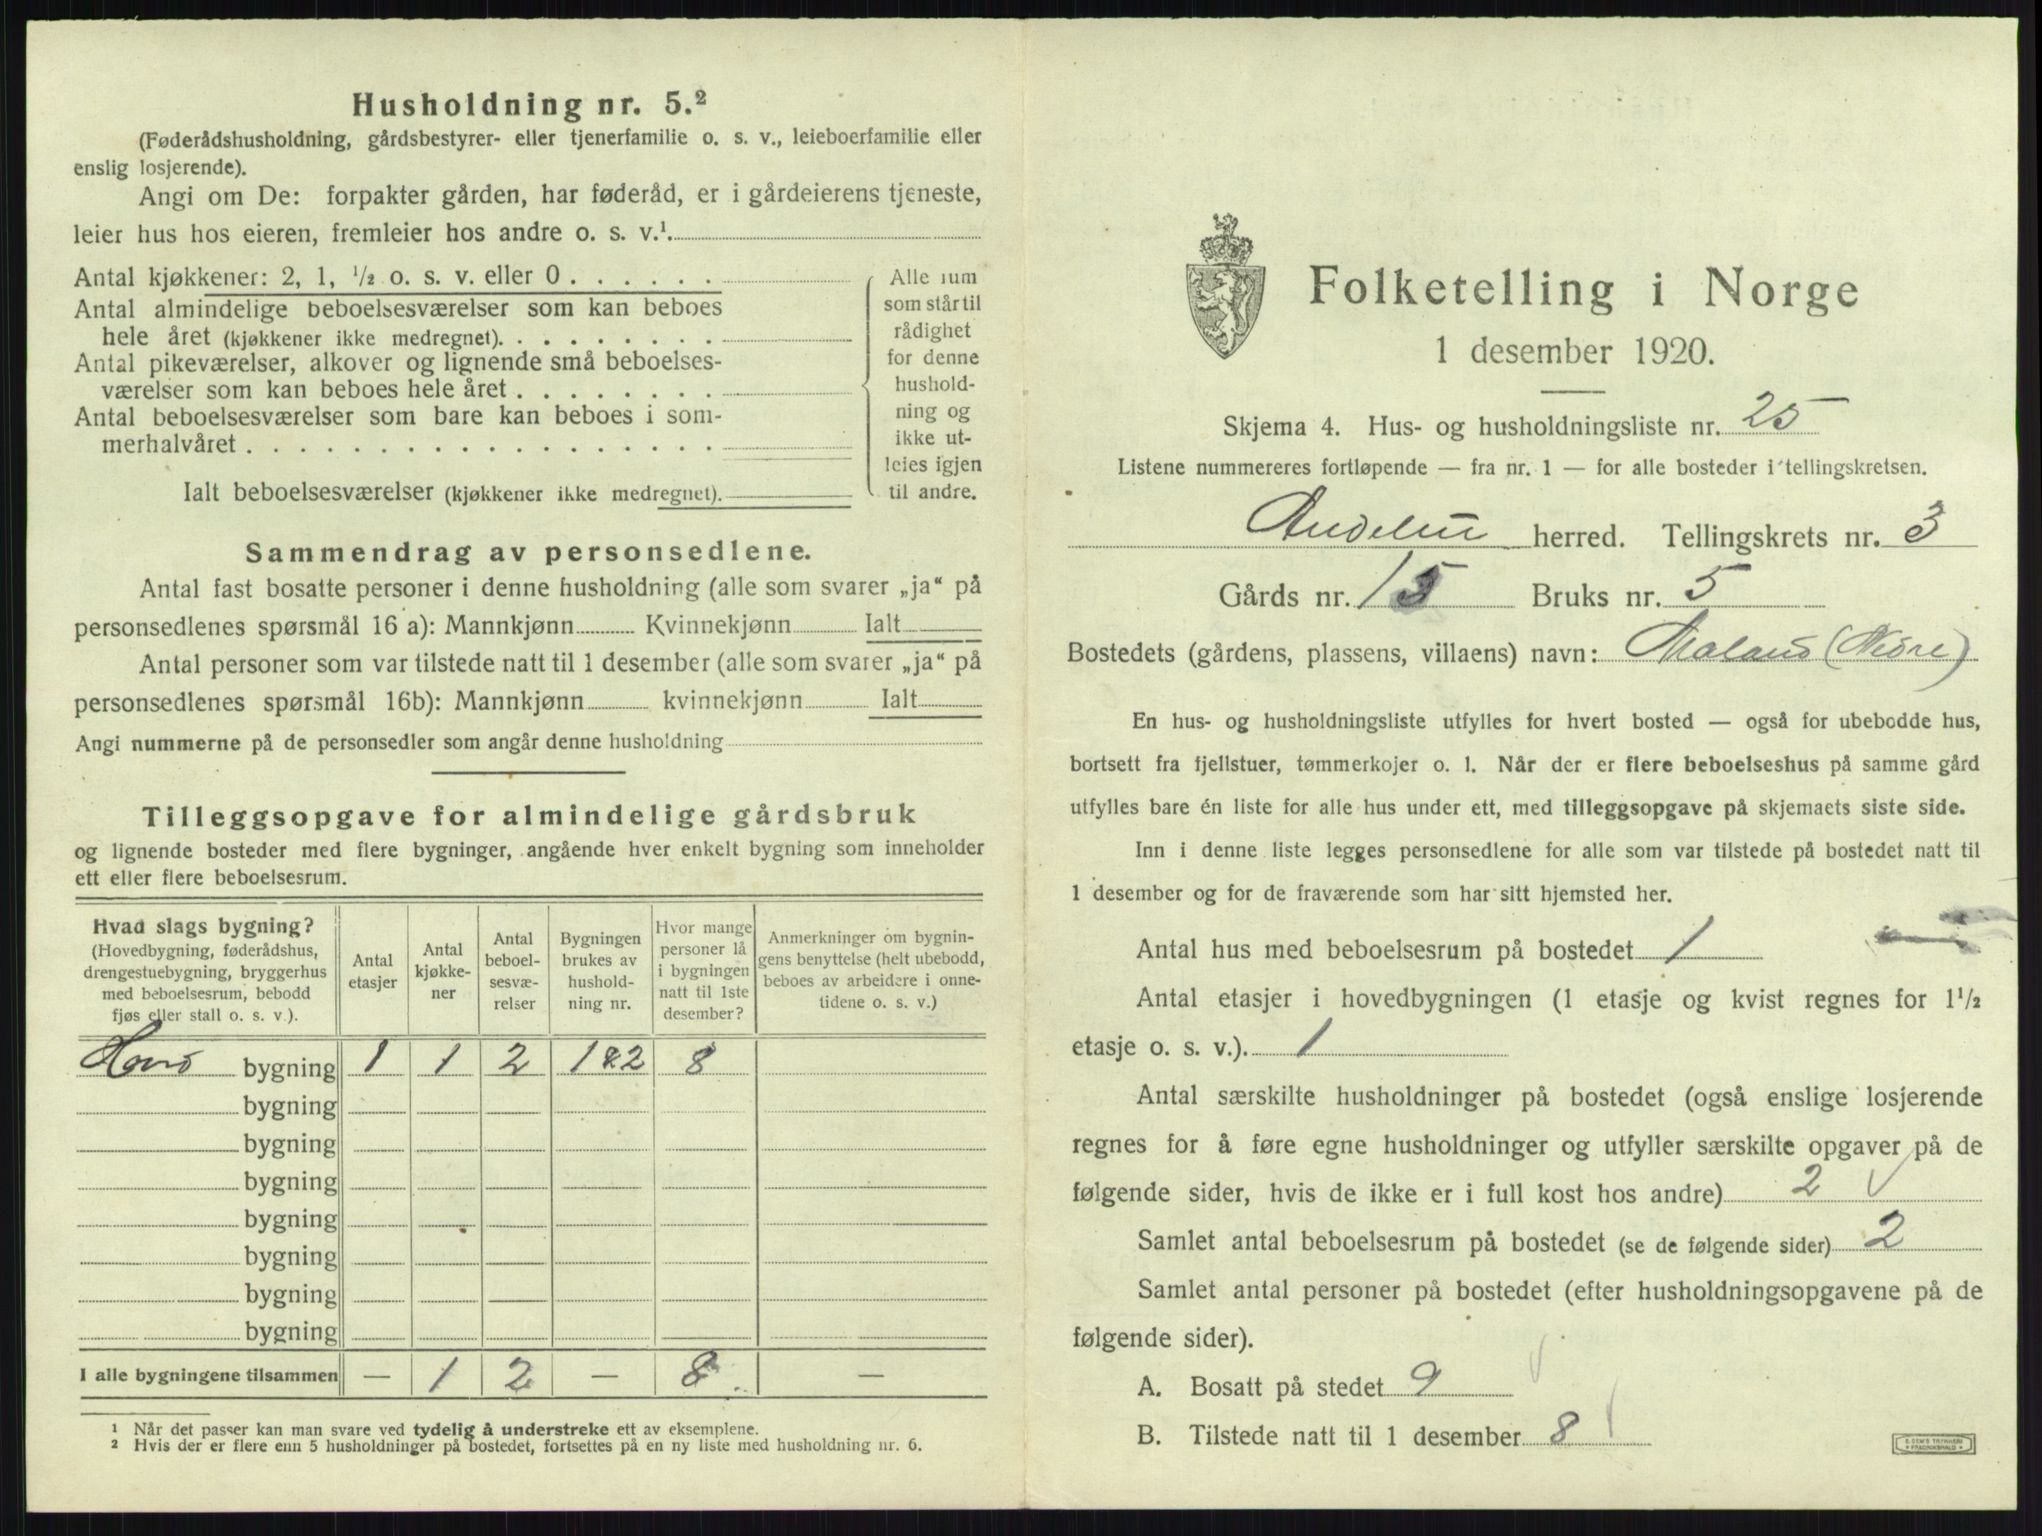 Husholdning nr. 5.²
(Føderådshusholdning, gårdsbestyrer- eller tjenerfamilie o. s. v., leieboerfamilie eller
enslig losjerende).
Angi om De: forpakter gården, har føderåd, er i gårdeierens tjeneste,
leier hus hos eieren, fremleier hos andre o. s. v.¹.
Antal kjøkkener: 2, 1, ¹/₂ o. s. v. eller 0 . . . . . .
Antal almindelige beboelsesværelser som kan beboes
hele året (kjøkkener ikke medregnet). . . . . . . . .
Antal pikeværelser, alkover og lignende små beboelses-
værelser som kan beboes hele året . . . . . . . .
Antal beboelsesværelser som bare kan beboes i som-
merhalvåret . . . . . . . . . . . . . . . . . .
Ialt beboelsesværelser (kjøkkener ikke medregnet).
Alle rum
som står til
rådighet
for denne
hushold-
ning og
ikke ut-
leies igjen
til andre.
Sammendrag av personsedlene.
Antal fast bosatte personer i denne husholdning (alle som svarer „ja“ på
personsedlenes spørsmål 16 a): Mannkjønn Kvinnekjønn Ialt
Antal personer som var tilstede natt til 1 desember (alle som svarer „ja“ på
personsedlenes spørsmål 16b): Mannkjønn kvinnekjønn Ialt
Angi nummerne på de personsedler som angår denne husholdning
Tilleggsopgave for almindelige gårdsbruk
og lignende bosteder med flere bygninger, angående hver enkelt bygning som inneholder
ett eller flere beboelsesrum.
Hvad slags bygning?
(Hovedbygning, føderådshus,
drengestuebygning, bryggerhus
med beboelsesrum, bebodd
fjøs eller stall o. s. v.).
Antal
etasjer
Antal
kjøkke-
ner
Antal
beboel-
sesvæ-
relser
Bygningen
brukes av
hushold-
ning nr.
Hvor mange
personer lå
i bygningen
natt til 1ste
desember?
Anmerkninger om bygnin-
gens benyttelse (helt ubebodd,
beboes av arbeidere i onne-
tidene o. s. v.)
Hovd bygning 1 1 2 1&2 8
bygning
bygning
bygning
bygning
bygning
bygning
bygning
I alle bygningene tilsammen — 1 2 — 8 —
¹ Når det passer kan man svare ved tydelig å understreke ett av eksemplene.
² Hvis der er flere enn 5 husholdninger på bostedet, fortsettes på en ny liste med husholdning nr. 6.
Folketelling i Norge
1 desember 1920.
Skjema 4. Hus- og husholdningsliste nr. 25
Listene nummereres fortløpende — fra nr. 1 — for alle bosteder i tellingskretsen.
herred. Tellingskrets nr. 3
Gårds nr. 15 Bruks nr. 5
Bostedets (gårdens, plassens, villaens) navn: (Nedre)
En hus- og husholdningsliste utfylles for hvert bosted — også for ubebodde hus,
bortsett fra fjellstuer, tømmerkojer o. l. Når der er flere beboelseshus på samme gård
utfylles bare én liste for alle hus under ett, med tilleggsopgave på skjemaets siste side.
Inn i denne liste legges personsedlene for alle som var tilstede på bostedet natt til
1 desember og for de fraværende som har sitt hjemsted her.
Antal hus med beboelsesrum på bostedet 1
Antal etasjer i hovedbygningen (1 etasje og kvist regnes for 1¹/₂
etasje o. s. v.). 1
Antal særskilte husholdninger på bostedet (også enslige losjerende
regnes for å føre egne husholdninger og utfyller særskilte opgaver på de
følgende sider, hvis de ikke er i full kost hos andre) 2 √
Samlet antal beboelsesrum på bostedet (se de følgende sider) 2
Samlet antal personer på bostedet (efter husholdningsopgavene på de
følgende sider).
A. Bosatt på stedet 9 √
B. Tilstede natt til 1 desember 8 √